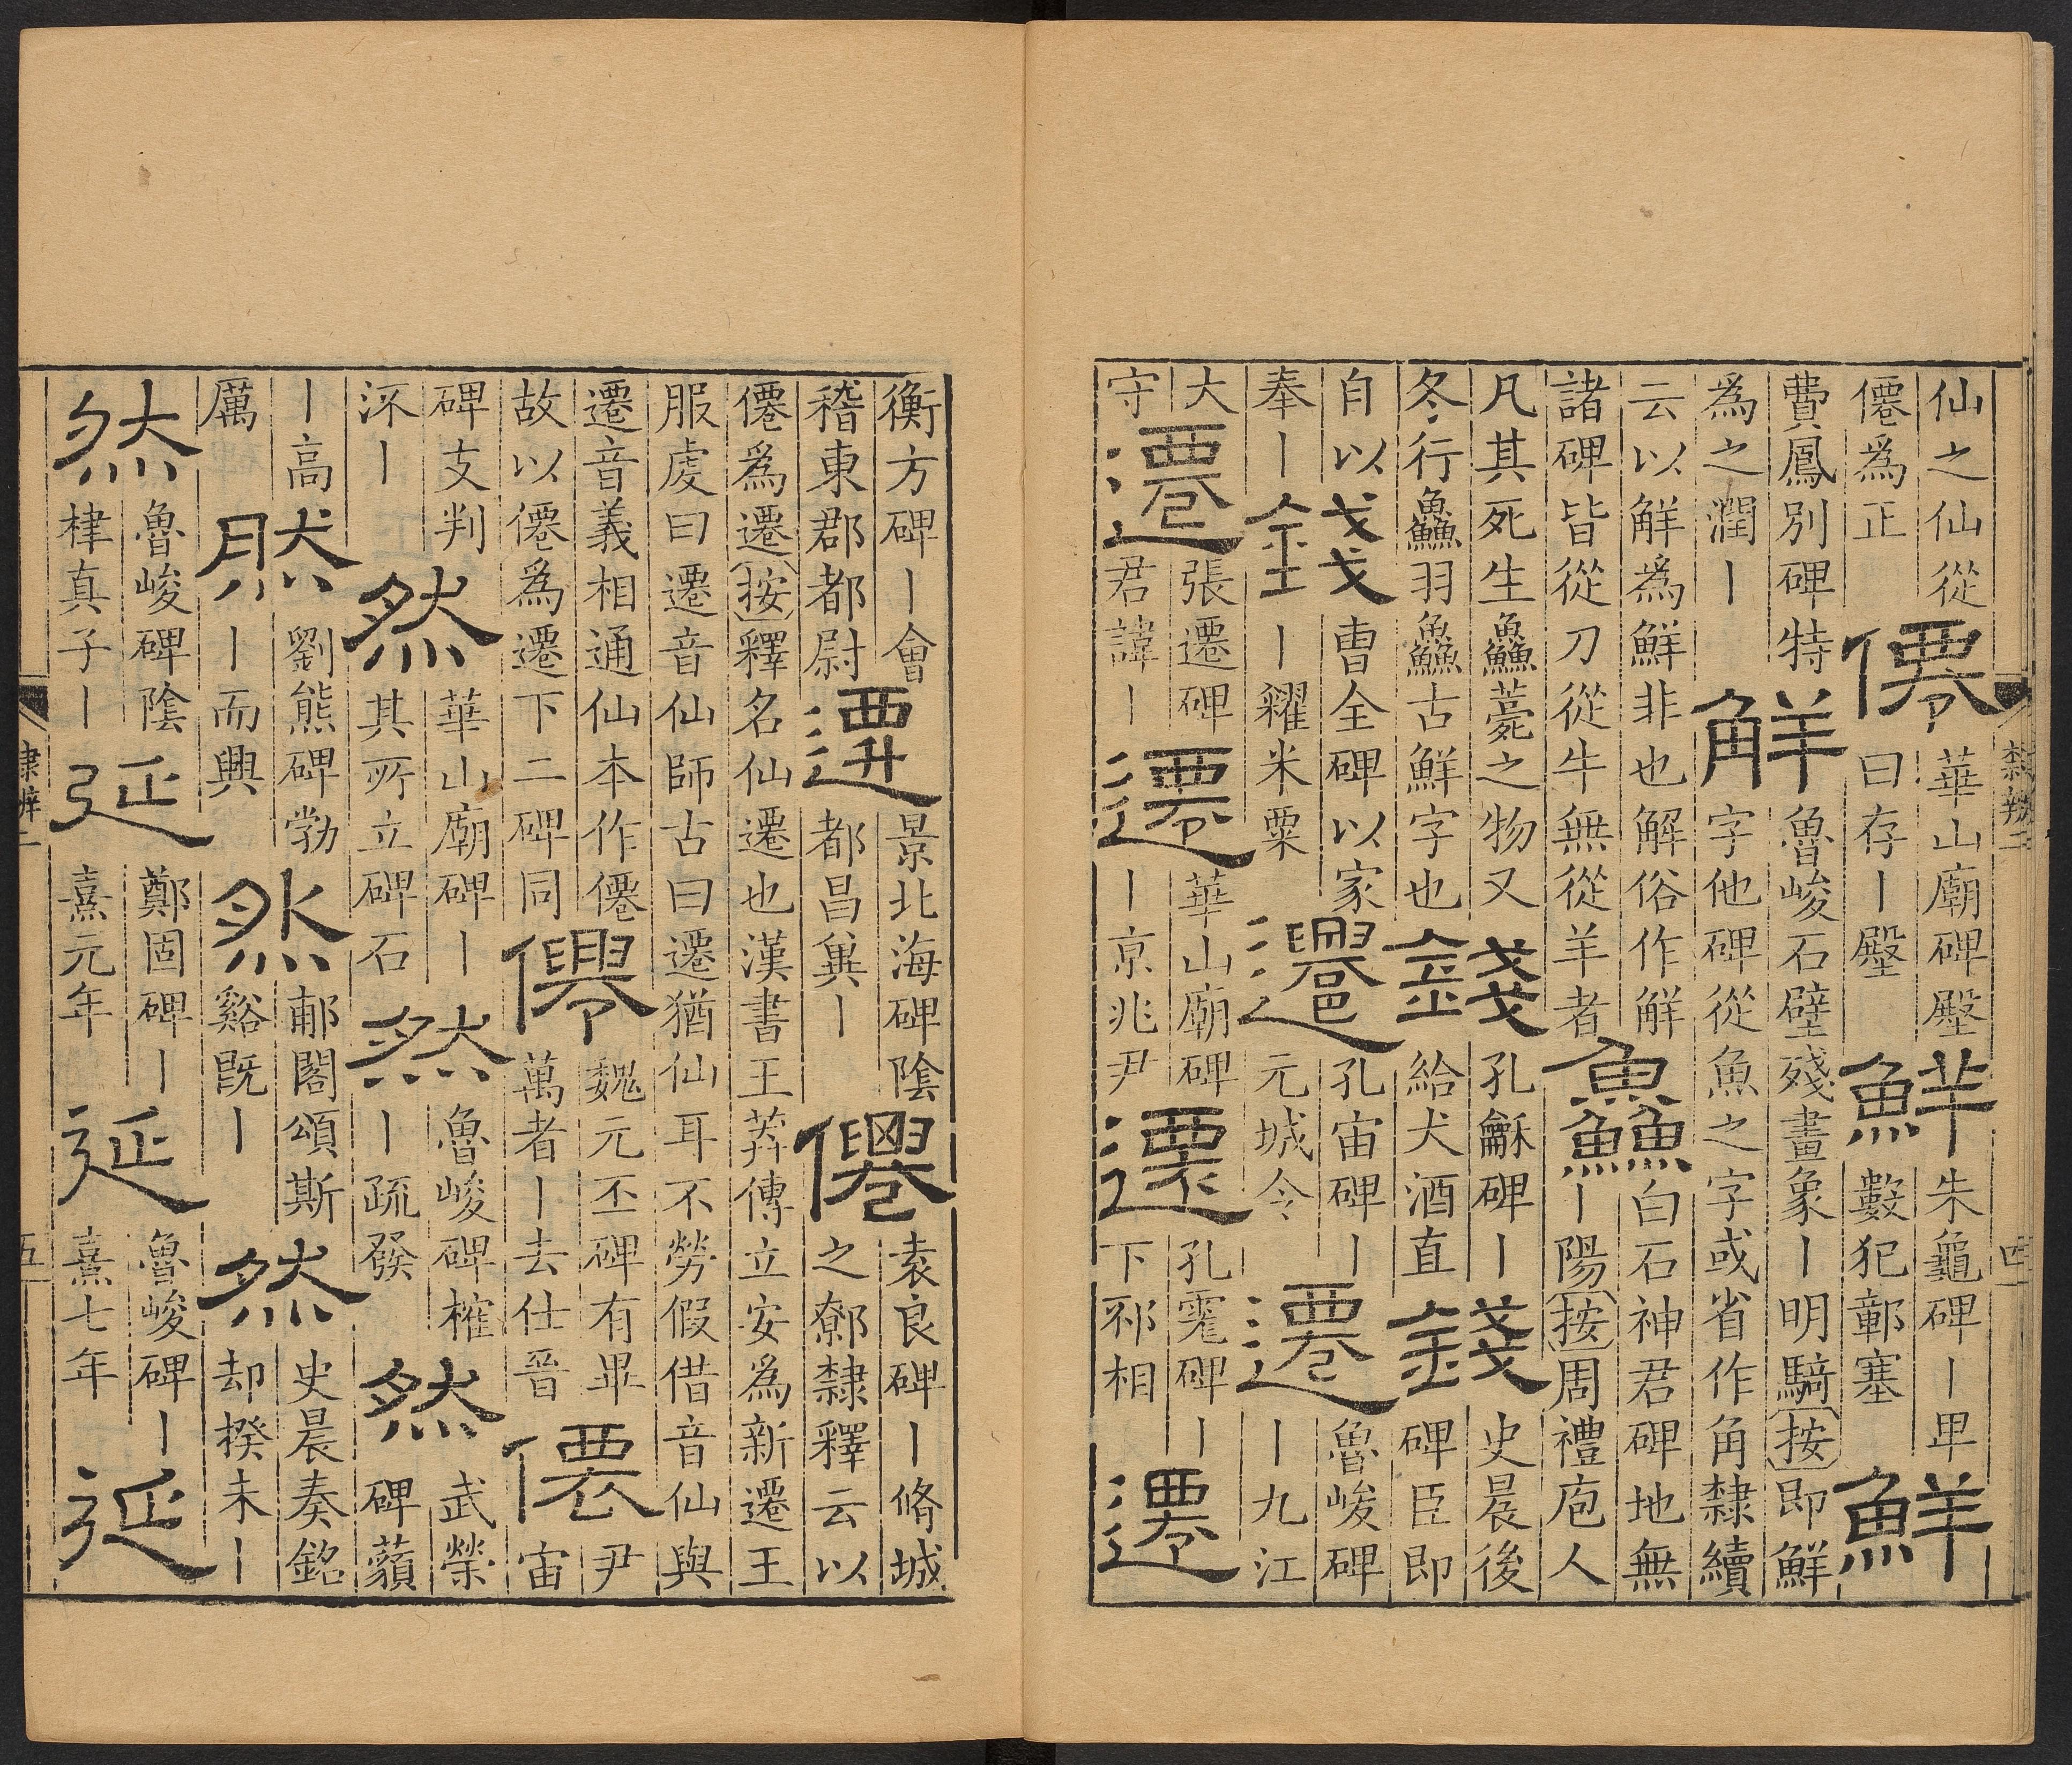 仙之仙從僊為正僊華山廟碑殿曰存丨殿鮮朱龜碑丨卑數犯鄣塞鮮
費鳳別碑特為之潤丨觧魯峻石壁殘畫象丨明騎按即鮮字他碑從魚之字或省作角隸續
云以觧為鮮非也解俗作觧諸碑皆從刀從牛無從羊者鱻白石神君碑地無丨陽按周禮庖人
凡其死生鱻薧之物又冬行鱻羽鱻古鮮字也錢孔龢碑丨給犬酒直錢史晨後碑臣即
自以奉丨錢曹全碑以家丨糴米粟遷孔宙碑丨元城令遷魯峻碑丨九江
大守遷張遷碑君諱丨遷華山廟碑丨京兆尹遷孔霮碑丨下邳相遷
隸辨二 四
衡方碑丨會稽東郡都尉遷景北海碑陰都昌冀丨僊袁良碑丨脩城之鄡隸釋云以
僊為遷按釋名仙遷也漢書王莽傳立安為新遷王
服虔曰遷音仙師古曰遷猶仙耳不勞假借音仙與
遷音義相通仙本作僊故以僊為遷下二碑同僊魏元丕碑有畢萬者丨去仕晉僊尹宙
碑支判丨然華山廟碑丨其所立碑石然魯峻碑搉丨疏發然武榮碑蘋
丨高厲然劉熊碑勃丨而興然郙閣頌斯谿既丨然史晨奏銘却揆未丨
然魯峻碑陰棣真子丨延鄭固碑丨熹元年延魯峻碑丨熹七年延
隸辨二 五